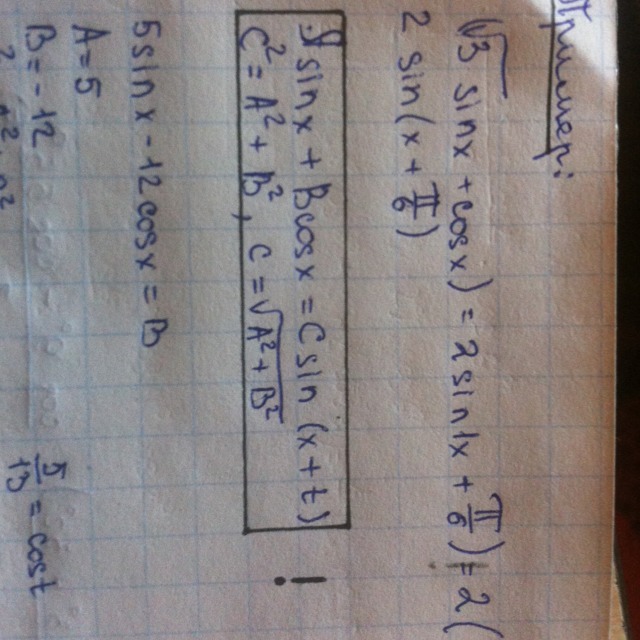 Пример:
√3 sinx + cosx) = 2 sin(x + π/6) = 2(
2 sin(x + π/6)
A sinx + B cosx = C sin (x + t) !
C² = A² + B², C = √A² + B²
5 sinx - 12 cosx = B
A = 5
B = -12 5/13 = cos t